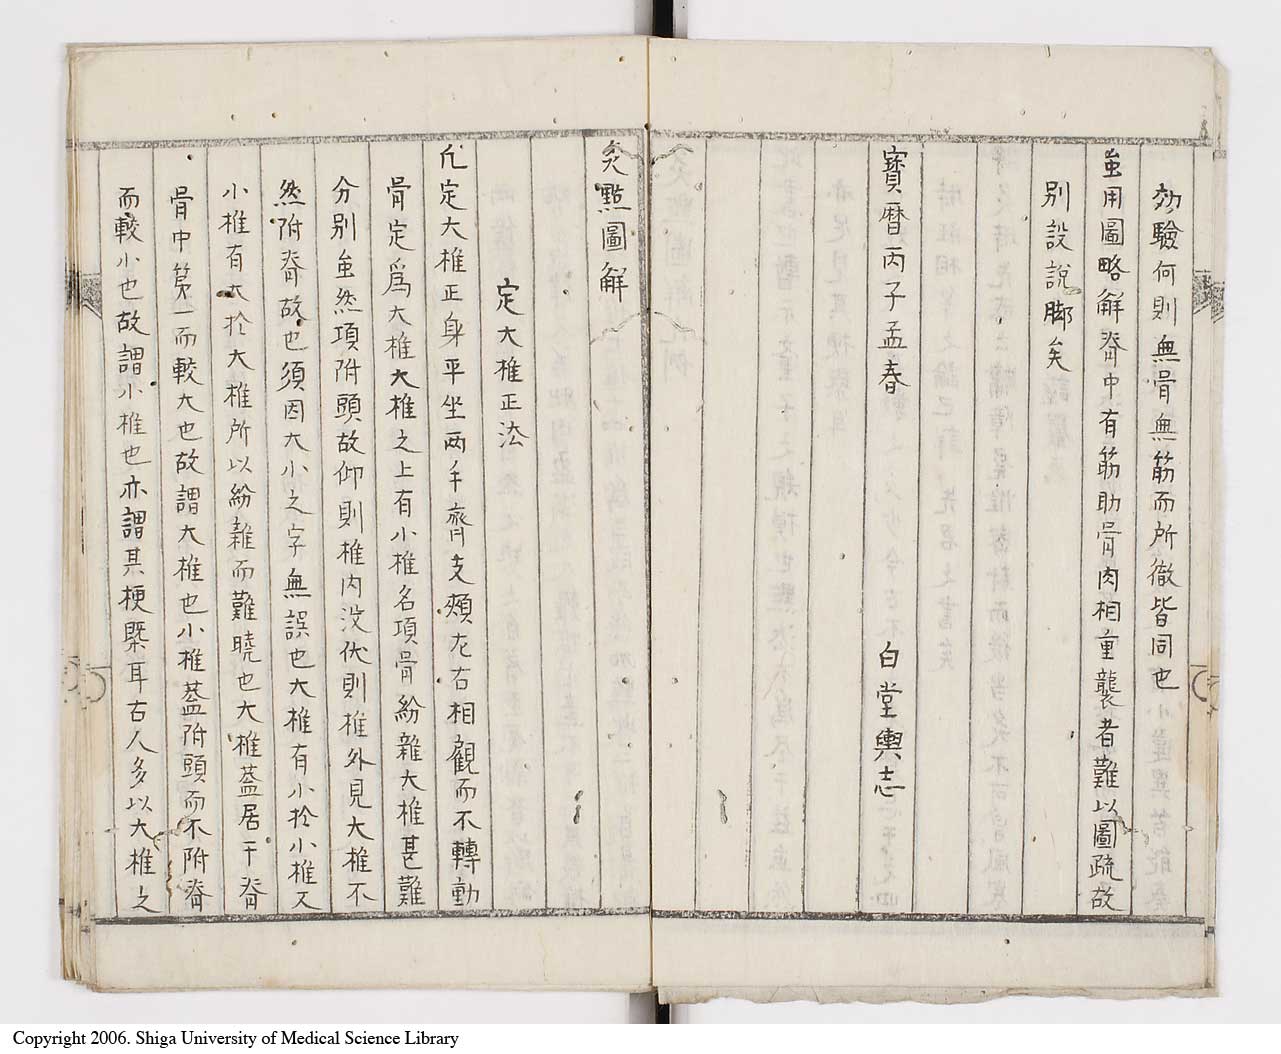 効驗何則無骨無筋而所徹皆同也
虽用圖略解脊中有筋助骨肉相重襲者難以圖疏故
別設說脚矣
寳暦丙子孟春　白堂輿志
灸㸃圖解
定大椎正法
凡定大椎正身平坐兩手齊支頰左右相觀而不轉動
骨定爲大椎大椎之上有小椎名項骨紛雜大椎甚難
分別虽然項附頭故仰則椎内没伏則椎外見大椎不
然附脊故也須因大小之字無誤也大椎有小於小椎又
小椎有大於大椎所以紛雜而難曉也大椎葢居干脊
骨中第一而較大也故謂大椎也小椎葢附頭而不附脊
而較小也故謂小椎也亦謂其梗槩耳古人多以大椎之
Copyright 2006. Shiga University of Medical Science Library